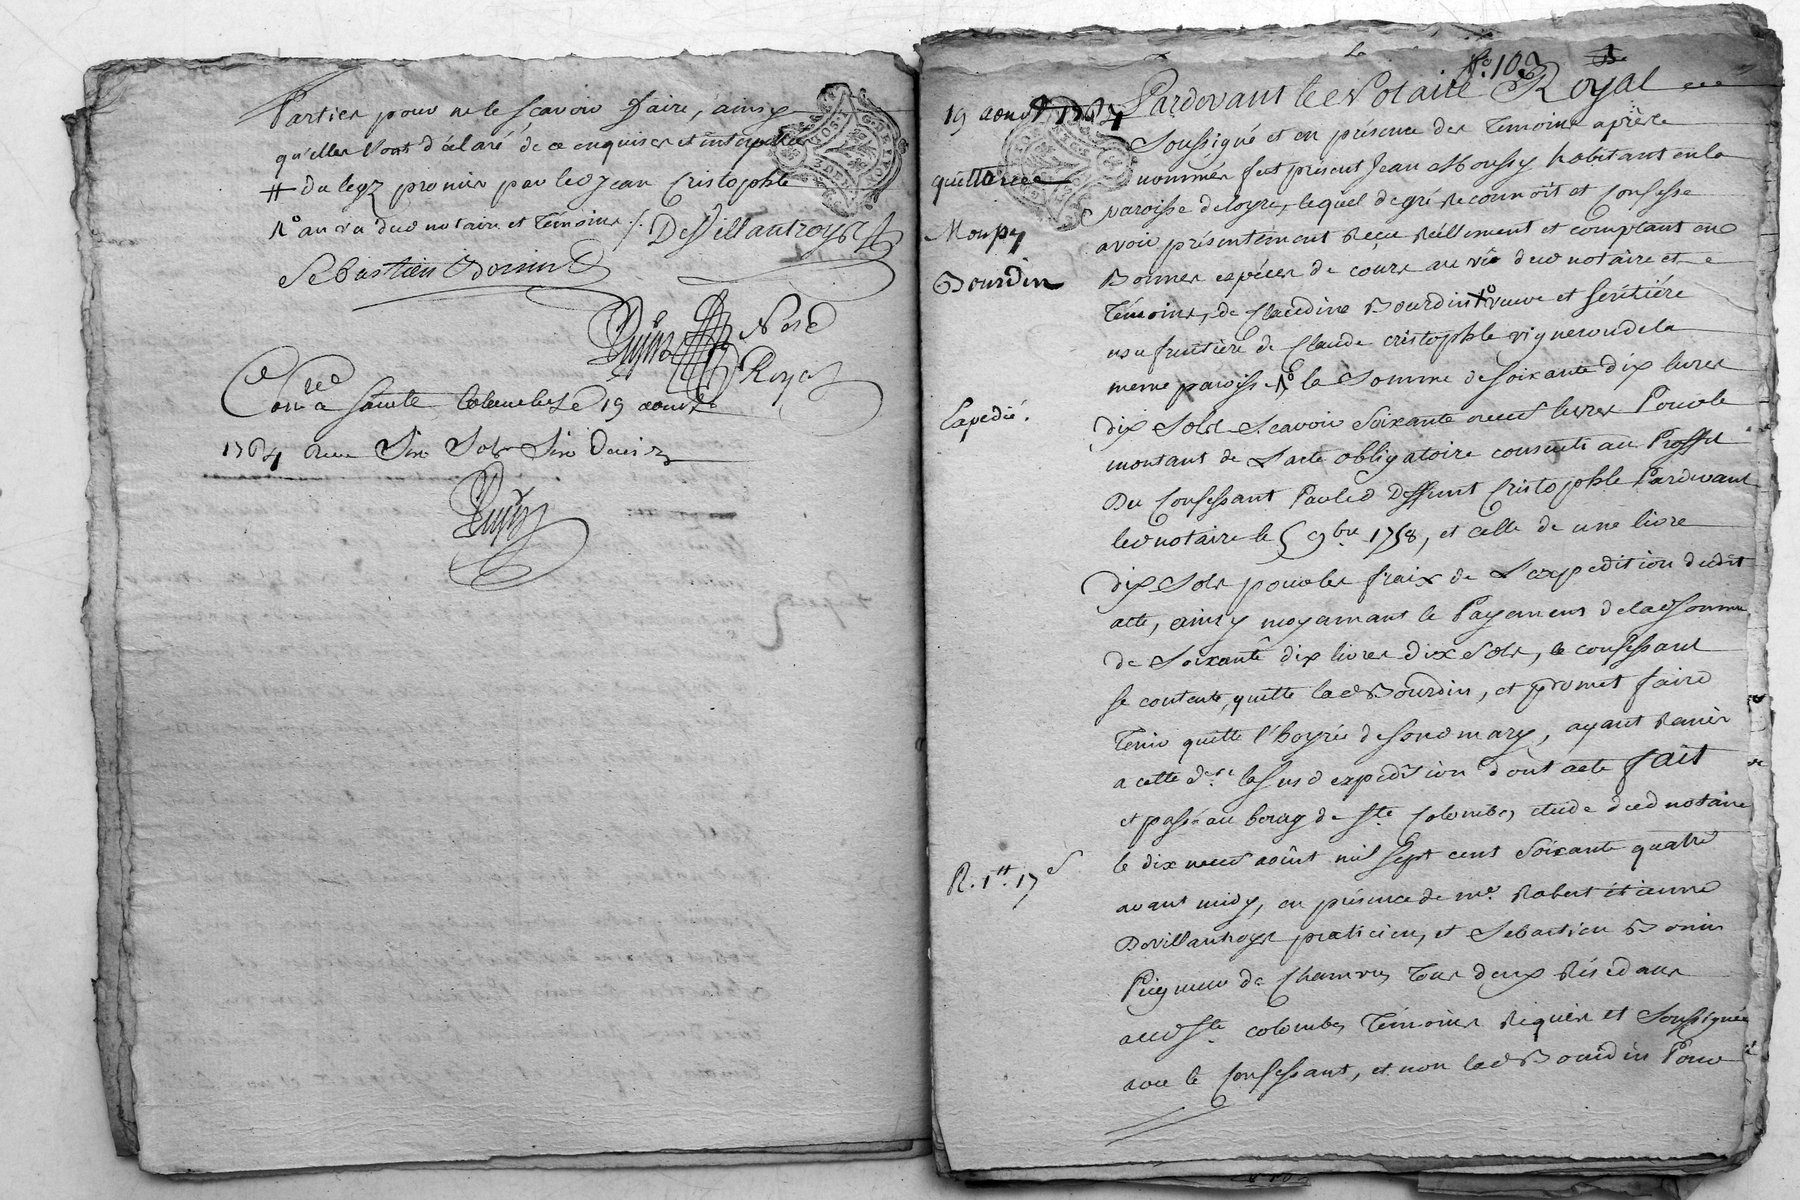 Parties pour ne le scavoir faire, ainsy
qu'elles l'ont déclaré de ce enquises et interpellées
# du legz premier par led Jean Cristophle
Ro au ... dud notaire et Témoins /.
DeVillantroys
Sebastien Bonin
Dujin Nore
Royal
Conlé a Sainte Colombe le 19 aoust
1764 reçu Six Sols Six Deniers
Dujin
No. 103
19 aoust 1764
quittance
Moussy
Bourdin
Expedié.
R. 1tt. 17s
Pardevant le Notaire Royal
Soussigné et en présence des Témoins après
nommés fut présent Jean Moussy habitant en la
paroisse de Loyre, lequel de gré Reconnoit et Confesse
avoir présentement Reçu Réellement et comptant en
Bonnes espéces de cours au vû dud notaire et
Témoins, de Claudine Bourdin veuve et héritiére
usufruitiére de Claude Cristophle vigneron de la
meme paroisse Ro la Somme de Soixante dix livres
dix Sols Scavoir Soixante neuf livres Pour le
montant de L'acte obligatoire consenti au Proffit
Du Confessant Par led Deffunt Cristophle Pardevant
led notaire le 5 9bre 1758, et celle de une livre
dix Sols pour les fraix de L'expedition dudit
acte, ainsy moyennant le Payement de lad Somme
de Soixante dix livres dix Sols, le confessant
se contente, quitte lad Bourdin, et promet faire
Tenir quitte l'hoyrie de sond mary, ayant Remis
a cette dere la susd expedition dont acte fait
et passé au bourg de Ste Colombe, étude dud notaire
le dix neuf août mil Sept cent Soixante quatre
avant midy, en présence de me. Robert étienne
Devillantroys praticien, et Sebastien Bonin
Peigneur de Chanvre, Tous deux Résidans
aud Ste. colombe, Témoins Réquis et Soussignés
avec le Confessant, et non lad Bourdin Pour